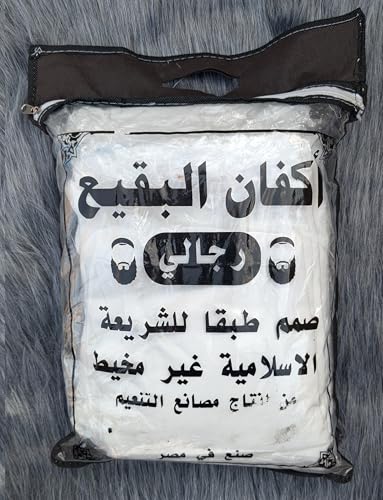 أكفان البقيع
رجالي
صمم طبقا للشريعة
الاسلامية غير مخيط
من انتاج مصانع التنعيم
صنع في مصر